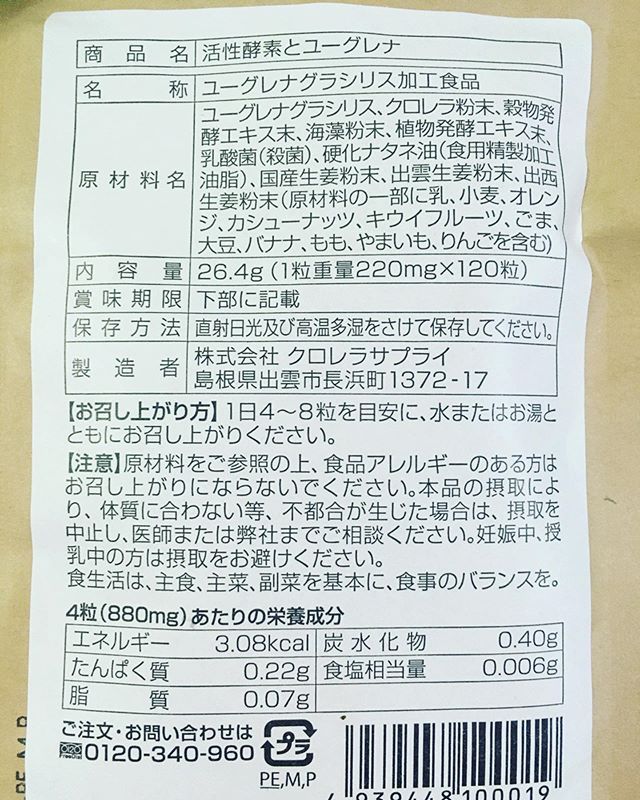 商品名 活性酵素とユーグレナ
名称 ユーグレナグラシリス加工食品
原材料名 ユーグレナグラシリス、クロレラ粉末、穀物発
酵エキス末、海藻粉末、植物発酵エキス末、
乳酸菌(殺菌)、硬化ナタネ油(食用精製加工
油脂)、国産生姜粉末、出雲生姜粉末、出西
生姜粉末(原材料の一部に乳、小麦、オレン
ジ、カシューナッツ、キウイフルーツ、ごま、
大豆、バナナ、もも、やまいも、りんごを含む)
内容量 26.4g(1粒重量220mg×120粒)
賞味期限 下部に記載
保存方法 直射日光及び高温多湿をさけて保存してください。
製造者 株式会社 クロレラサプライ
島根県出雲市長浜町1372-17
【お召し上がり方】1日4~8粒を目安に、水またはお湯と
ともにお召し上がりください。
【注意】原材料をご参照の上、食品アレルギーのある方は
お召し上がりにならないでください。本品の摂取によ
り、体質に合わない等、不都合が生じた場合は、摂取を
中止し、医師または弊社までご相談ください。妊娠中、授
乳中の方は摂取をお避けください。
食生活は、主食、主菜、副菜を基本に、食事のバランスを。
4粒(880mg)あたりの栄養成分
エネルギー 3.08kcal 炭水化物 0.40g
たんぱく質 0.22g 食塩相当量 0.006g
脂質 0.07g
ご注文・お問い合わせは
FreeDial 0120-340-960
プラ
PE,M,P
4 939448 100019